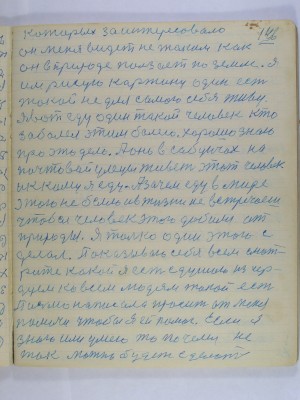 146
которых заинтересовало
он меня видет не таким как
он в природе ползает по земле. Я
им рисую картину один ест
такой не для самого себя живу.
Я вот еду один такой человек кто
заболел этим болею. хорошо знаю
про это дело. А он в сабунчах на
почтовай улеци живет этот человек
ик каму я еду. А зачем еду в мире
этого не было и в жизни не встречаем
чтобы человек этого добился от
природы. Я толко один этого с
делал. Показываю себя всем смот
рите какой я ест с душою из
ко всем людям такой ест
написала просит от меня
помочи чтобы я ей помог. Если я
знаю или умею то почему не
так можно будет сделат